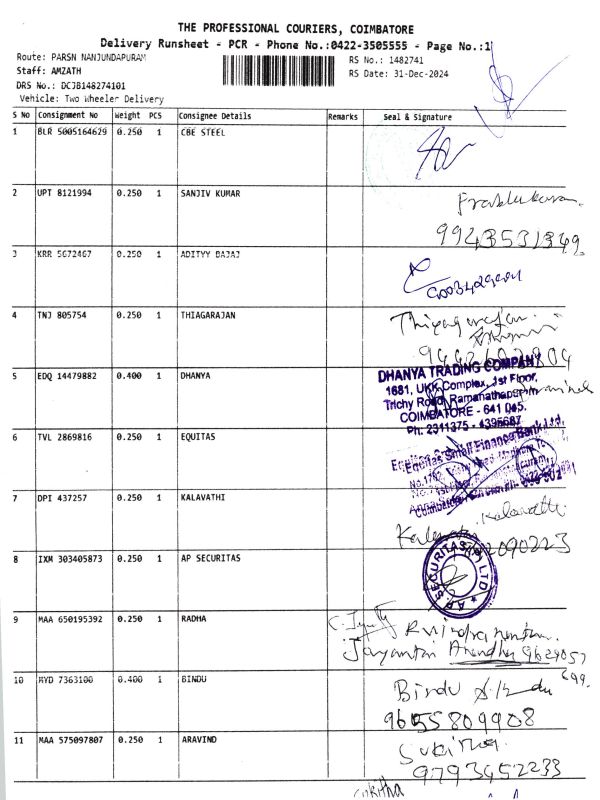 THE PROFESSIONAL COURIERS, COIMBATORE
Delivery Runsheet - PCR - Phone No.:0422-3505555 - Page No.:1
Route: PARSN NANJUNDAPURAM
RS No.: 1482741
Staff: AMZATH
RS Date: 31-Dec-2024
DRS No.: DCJB148274101
Vehicle: Two Wheeler Delivery
S No Consignment No Weight PCS Consignee Details Remarks Seal & Signature
1 BLR 5005164629 0.250 1 CBE STEEL
2 UPT 8121994 0.250 1 SANJIV KUMAR
Prabhukaran.
9943531349
3 KRR 5672467 0.250 1 ADITYY BAJAJ
4 TNJ 805754 0.250 1 THIAGARAJAN
Thiyagarajan.
5 EDQ 14479882 0.400 1 DHANYA
DHANYA TRADING COMPANY
1681, UKK Complex, 1st Floor,
Trichy Road, Ramanathapuram
COIMBATORE - 641 045.
Ph: 2311375 - 4395687
6 TVL 2869816 0.250 1 EQUITAS
Equitas Small Finance Bank Ltd.
7 DPI 437257 0.250 1 KALAVATHI
Kalavathi
8 IXM 303405873 0.250 1 AP SECURITAS
A.P. SECURITAS (P) LTD
9 MAA 650195392 0.250 1 RADHA
10 HYD 7363100 0.400 1 BINDU
Bindu
9655809908
11 MAA 575097807 0.250 1 ARAVIND
9793452233